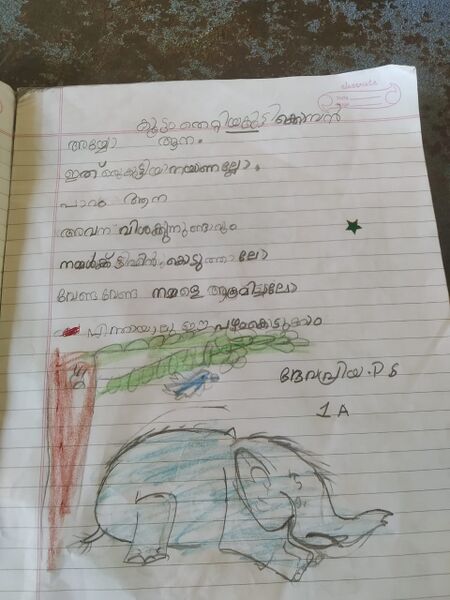 classmate
Date
Page
കൂട്ടം തെറ്റിയകുട്ടി ക്കൊമ്പൻ
അയ്യോ ആന.
ഇത് ഒരുകുട്ടിയാനയാണല്ലോ.
പാവം ആന
അവന് വിശക്കുന്നുണ്ടാവും
നമ്മൾക്ക് ടിഫിൻ കൊടുത്താലോ
വേണ്ട വേണ്ട നമ്മളെ ആക്രമിച്ചാലോ
ഈ പഴംകൊടുക്കാം
ദേവപ്രിയ. P S
1 A